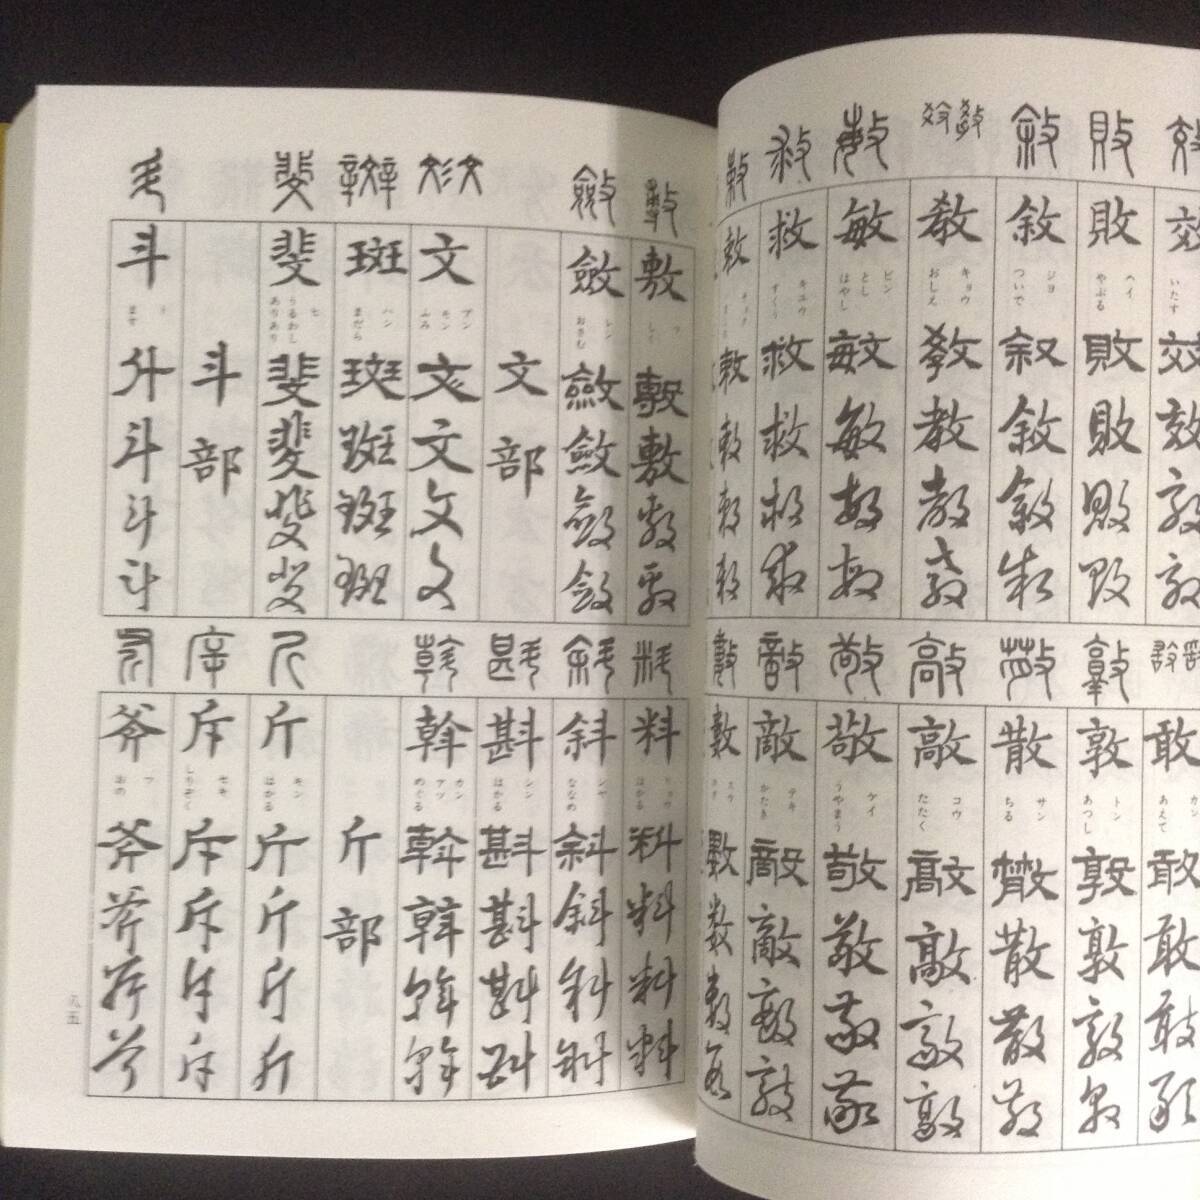 效 效 いたす 效 效 效 效
敗 敗 ヘイ やぶる 敗 敗 敗 敗
敘 敘 ジヨ ついで 敘 敘 敘 敘
教 教 キョウ おしえ 教 教 教 教
敏 敏 ビン とし はやし 敏 敏 敏 敏
救 救 キユウ すくう 救 救 救 救
敕 敕 チョク 敕 敕 敕 敕
敢 敢 カン あえて 敢 敢 敢 敢
敦 敦 トン あつし 敦 敦 敦 敦
散 散 サン ちる 散 散 散 散
敲 敲 コウ たたく 敲 敲 敲 敲
敬 敬 ケイ うやまう 敬 敬 敬 敬
敵 敵 テキ かたき 敵 敵 敵 敵
數 數 スウ 數 數 數 數
敷 敷 しく 敷 敷 敷 敷
斂 斂 おさむ 斂 斂 斂 斂
文部
文 文 ブン モン ふみ 文 文 文 文
斑 斑 ハン まだら 斑 斑 斑 斑
斐 斐 ヒ うるわし ありあり 斐 斐 斐 斐
斗部
斗 斗 ト ます 斗 斗 斗 斗
料 料 リョウ はかる 料 料 料 料
斜 斜 シヤ ななめ 斜 斜 斜 斜
斟 斟 シン はかる 斟 斟 斟 斟
斡 斡 カン アツ めぐる 斡 斡 斡 斡
斤部
斤 斤 キン はかる 斤 斤 斤 斤
斥 斥 セキ しりぞく 斥 斥 斥 斥
斧 斧 フ おの 斧 斧 斧 斧
八五